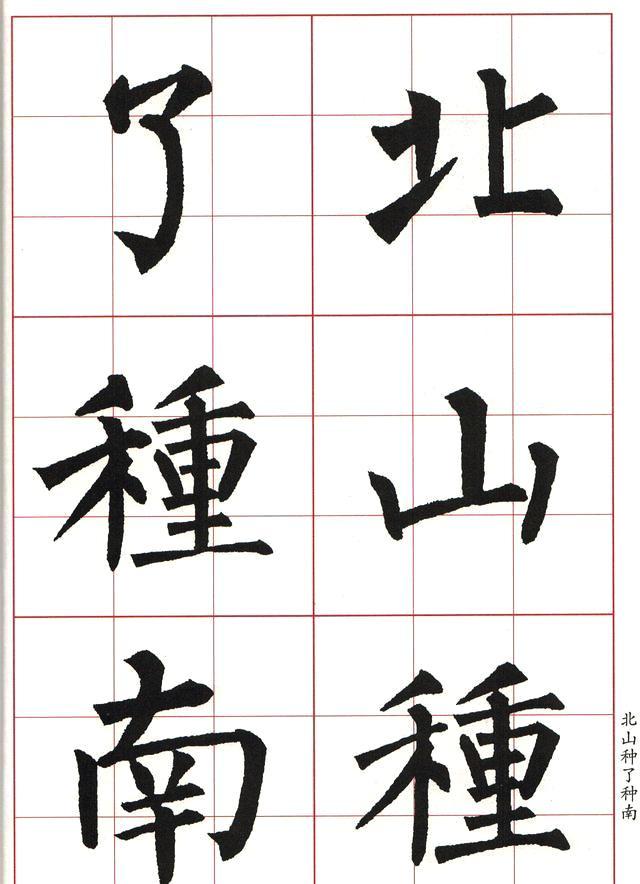 北山種
了種南
北山种了种南